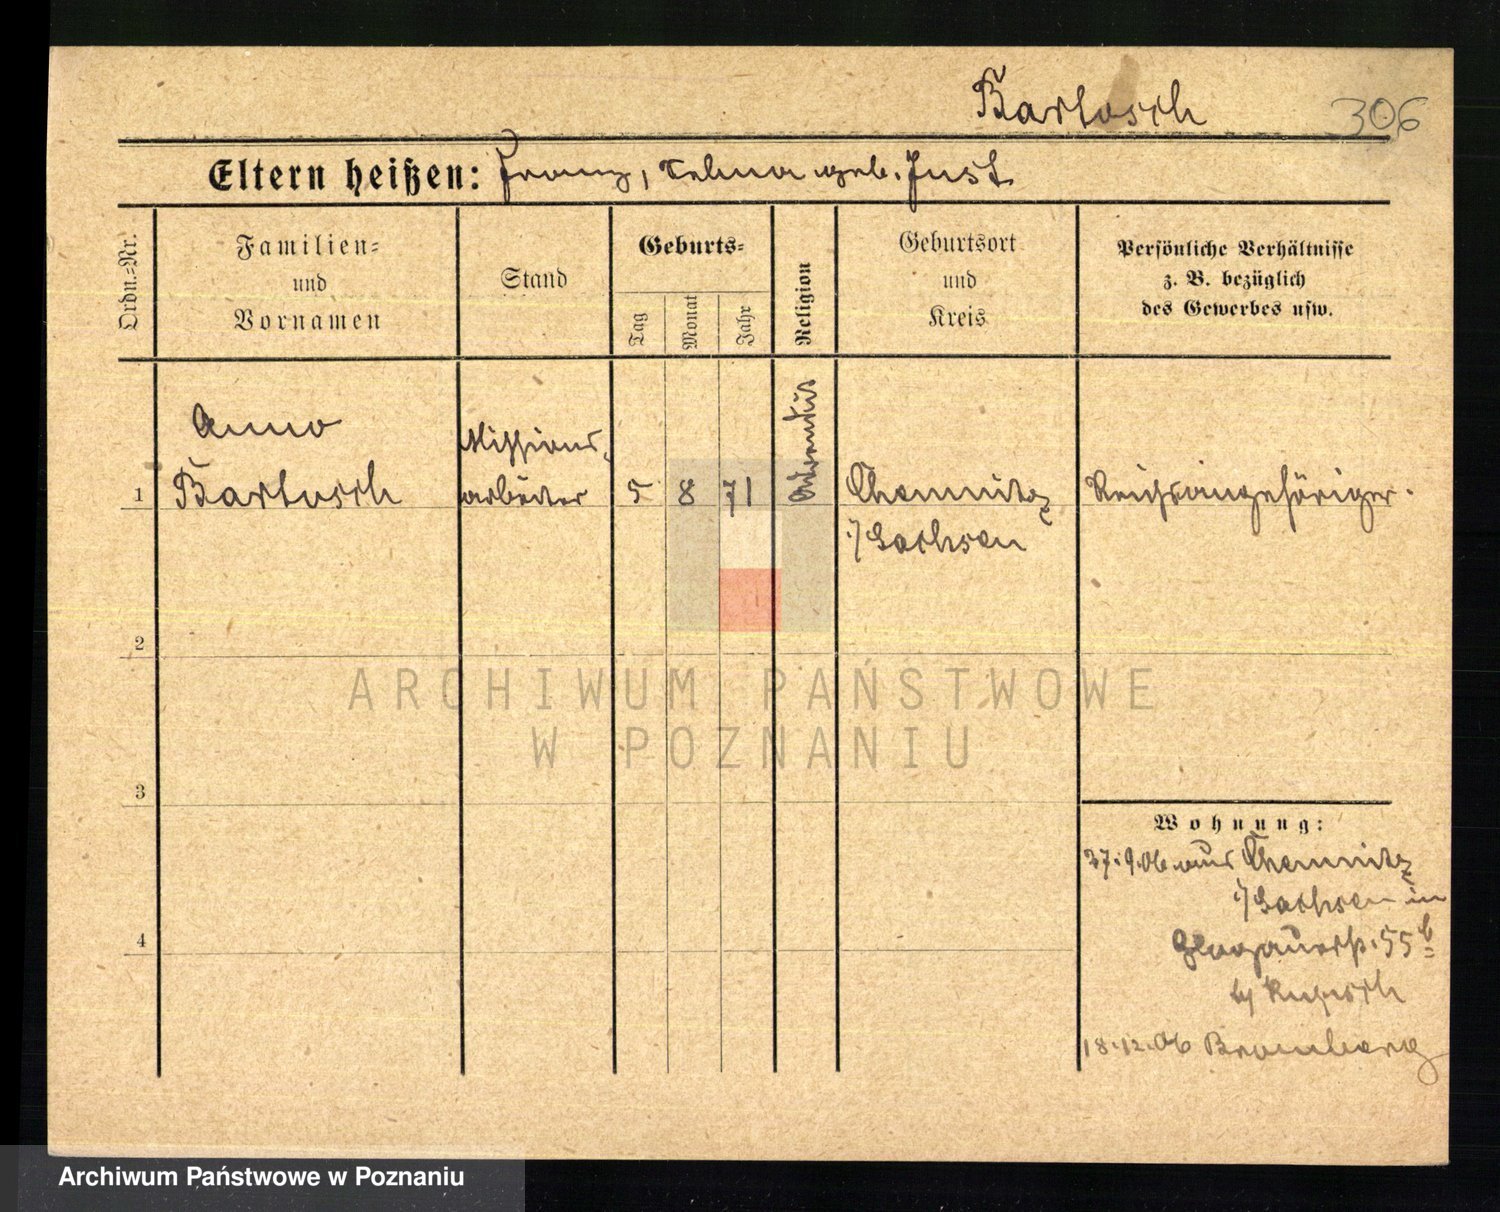 Bartosch 306
Eltern heißen: Franz, Selma geb. Just
Ordn.=Nr.
Familien=
und
Vornamen
Stand
Geburts=
Tag
Monat
Jahr
Religion
Geburtsort
und
Kreis
Persönliche Verhältnisse
z. B. bezüglich
des Gewerbes usw.
1
Anno
Bartosch
Missions-
arbeiter
5
8
71
Adventist
Chemnitz
i/Sachsen
Reichsangehöriger.
2
3
4
ARCHIWUM PAŃSTWOWE
W POZNANIU
Wohnung:
27.9.06 aus Chemnitz
i/Sachsen in
Glogauerstr. 55 b
by
18.12.06 Bromberg
Archiwum Państwowe w Poznaniu